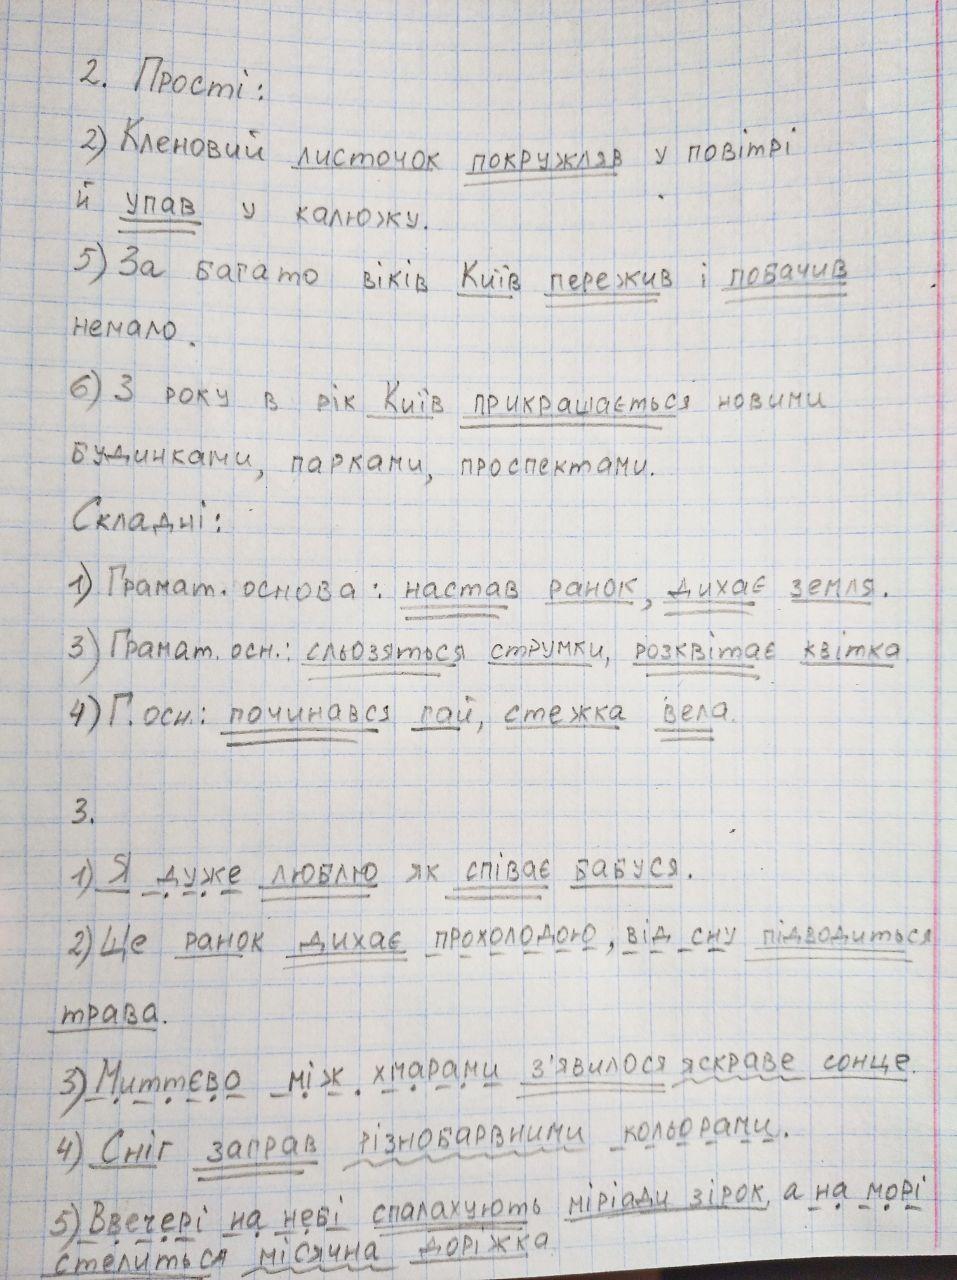 2. Прості:
2) Кленовий листочок покружляв у повітрі
й упав у калюжу.
5) За багато віків Київ пережив і побачив
немало.
6) З року в рік Київ прикрашається новими
будинками, парками, проспектами.
Складні:
1) Грамат. основа: настав ранок, дихає земля.
3) Грамат. осн.: сльозяться струмки, розквітає квітка
4) Г. осн.: починався гай, стежка вела.
3.
1) Я дуже люблю як співає бабуся.
2) Ще ранок дихає прохолодою, від сну підводиться
трава.
3) Миттєво між хмарами з'явилося яскраве сонце.
4) Сніг заграв різнобарвними кольорами.
5) Ввечері на небі спалахують міріади зірок, а на морі
стелиться місячна доріжка